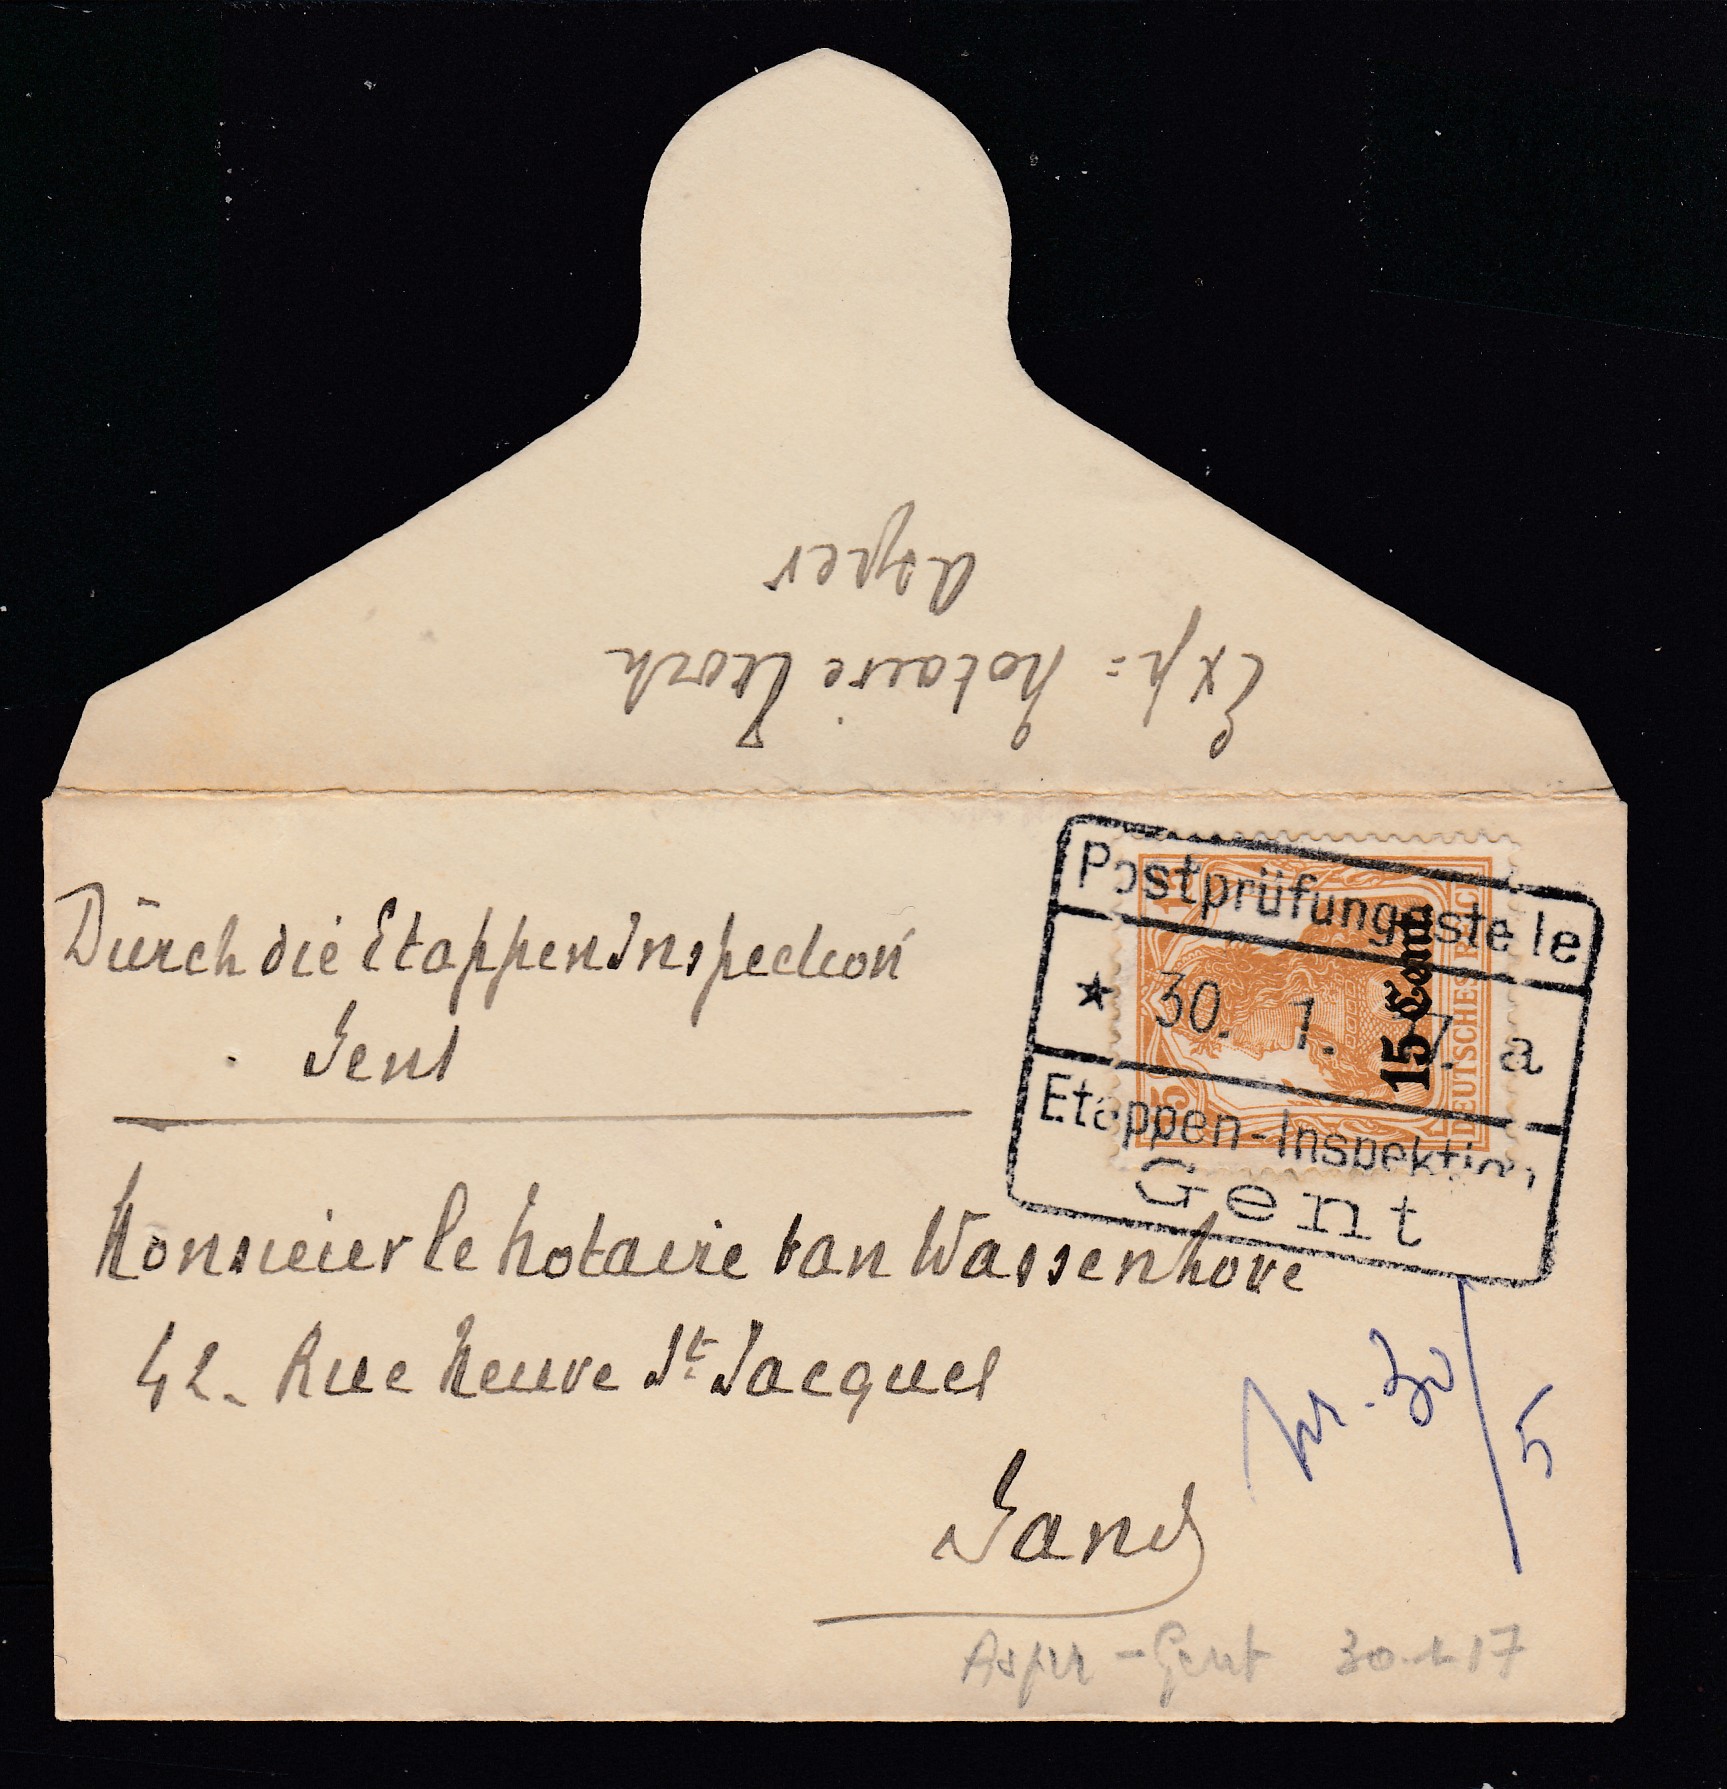 Exp: notaire
Asper
Dürch die Etappen Inspection
Gent
Postprüfungsstelle
★ 30. 1. 17. a
Etappen-Inspektion
Gent
15 Cent.
DEUTSCHES REICH
15
15
Monsieur le Notaire van Wassenhove
42. Rue Neuve St. Jacques
Gand
Nr. 30/5
Asper - Gent 30.1.17